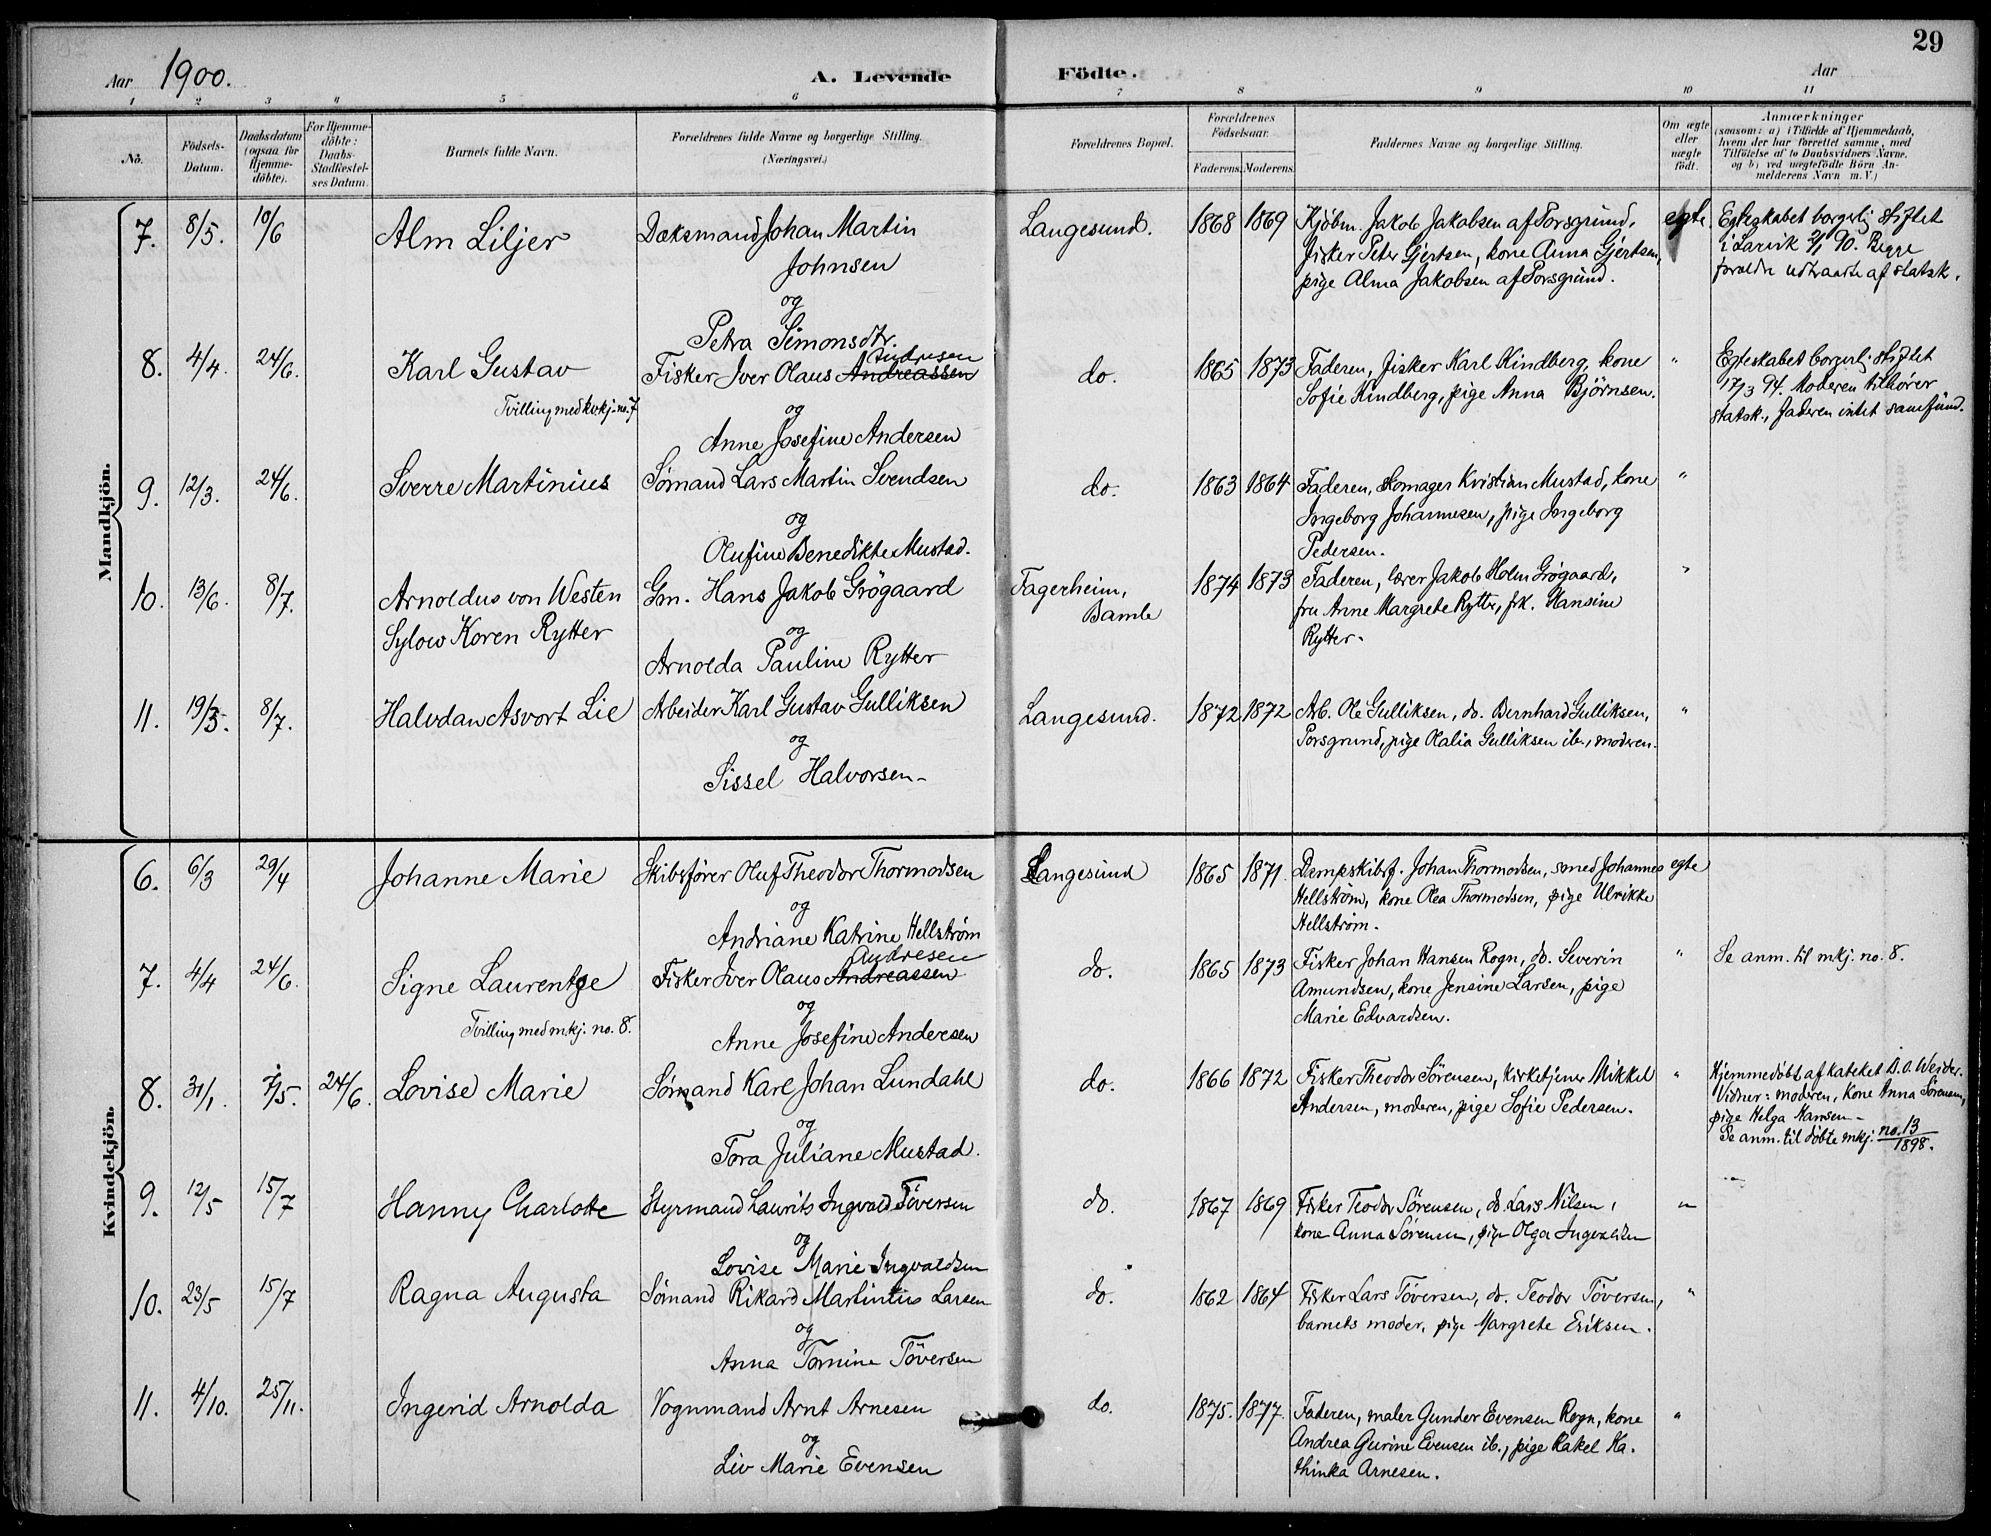 29
Aar 1900.
A. Levende Födte.
Aar
1 2 3 4 5 6 7 8 9 10 11
No.
Födsels-
Datum.
Daabsdatum
(ogsaa for
Hjemme-
döbte).
For Hjemme-
döbte:
Daabs-
Stadfæstel-
ses Datum.
Barnets fulde Navn.
Forældrenes fulde Navne og borgerlige Stilling.
(Næringsvei.)
Forældrenes Bopæl.
Forældrenes
Födselsaar.
Faderens. Moderens.
Faddernes Navne og borgerlige Stilling.
Om ægte
eller
uægte
født.
Anmærkninger
(saasom: a) i Tilfælde af Hjemmedaab,
hvem der har forrettet samme, med
Tilföielse af to Daabsvidners Navne,
og b) ved uægtefödte Börn An-
melderens Navn m. V.)
Mandkjön.
7. 8/5. 10/6 Alm Liljer Dæksmand Johan Martin
Johnsen
og
Petra Simonsdtr.
Langesund. 1868 1869 Kjøbm. Jakob Jakobsen af Porsgrund,
fisker Peter Gjertsen, kone Anna Gjertsen,
pige Alma Jakobsen af Porsgrund.
egte. Egteskabet borgerlig stiftet
i Larvik 2/1 90. Begge
forældre udtraadte af statsk.
8. 4/4. 24/6. Karl Gustav
Tvilling med kvkj. no. 7
Andresen
Fisker Iver Olaus Andreassen
og
Anne Josefine Andersen
do. 1865 1873 Faderen, fisker Karl Kindberg, kone
Sofie Kindberg, pige Anna Bjørnsen.
" Egteskabet borgerlig stiftet
17/3 94. Moderen tilhører
statsk., faderen intet samfund.
9. 12/3. 24/6. Sverre Martinius Sømand Lars Martin Svendsen
og
Olufine Benedikte Mustad.
do. 1863 1864 Faderen, skomager Kristian Mustad, kone
Ingeborg Johannesen, pige Ingeborg
Pedersen.
"
10. 13/6. 8/7. Arnoldus von Westen
Sylow Koren Rytter
Gm. Hans Jakob Grøgaard
og
Arnolda Pauline Rytter
Fagerheim,
Bamle
1874 1873 Faderen, lærer Jakob Holm Grøgaard,
fru Anne Margrete Rytter, frk. Hansine
Rytter.
"
11. 19/3. 8/7. Halvdan Asvort Lie Arbeider Karl Gustav Gulliksen
og
Sissel Halvorsen
Langesund. 1872 1872 Arb. Ole Gulliksen, do. Bernhard Gulliksen,
Porsgrund, pige Olalia Gulliksen ib., moderen.
"
Kvindekjön.
6. 6/3 29/4 Johanne Marie Skibsfører Oluf Theodor Thormodsen
og
Andriane Katrine Hellstrøm
Langesund 1865 1871. Dampskibsf. Johan Thormodsen, smed Johannes
Hellstrøm, kone Olea Thormodsen, pige Ulrikke
Hellstrøm.
egte
7. 4/4 24/6. Signe Laurentse
Tvilling med mkj. no. 8.
Andresen
Fisker Iver Olaus Andreassen
og
Anne Josefine Andersen
do. 1865 1873 Fisker Johan Hansen Rogn, do. Severin
Amundsen, kone Jensine Larsen, pige
Marie Edvardsen.
" Se anm. til mkj. no. 8.
8. 31/1. 7/5. 24/6. Lovise Marie Sømand Karl Johan Lundahl
og
Tora Juliane Mustad.
do. 1866 1872 Fisker Theodor Sørensen, kirketjener Mikkel
Andersen, moderen, pige Sofie Pedersen.
" Hjemmedøbt af kateket
Vidner: moderen, kone Anna Sørensen,
pige Helga Hansen
Se anm. til døbte mkj. no. 13
1898.
9. 12/5 15/7 Hanny Charlotte Styrmand Laurits Ingvald Töversen
og
Lovise Marie Ingvaldsen
do. 1867 1869 Fisker Teodor Sörensen, do. Lars Nilsen,
kone Anna Sörensen, pige Olga Ingvaldsen
"
10. 23/5 15/7 Ragna Augusta Sömand Rikard Martinius Larsen
og
Anna Tomine Töversen
do. 1862 1864 Fisker Lars Töversen, do. Teodor Töversen,
barnets moder, pige Margrete Eriksen.
"
11. 4/10. 25/11. Ingerid Arnolda Vognmand Arnt Arnesen
og
Liv Marie Evensen
do. 1875. 1877. Faderen, maler Gunder Evensen Rogn, kone
Andrea Gurine Evensen ib., pige Rakel Ka-
thinka Arnesen.
"